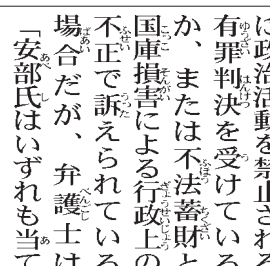 に政治活動を禁止される
有罪判決を受けている
か、または不法蓄財と
国庫損害による行政上の
不正で訴えられている
場合だが、弁護士は
「安部氏はいずれも当て